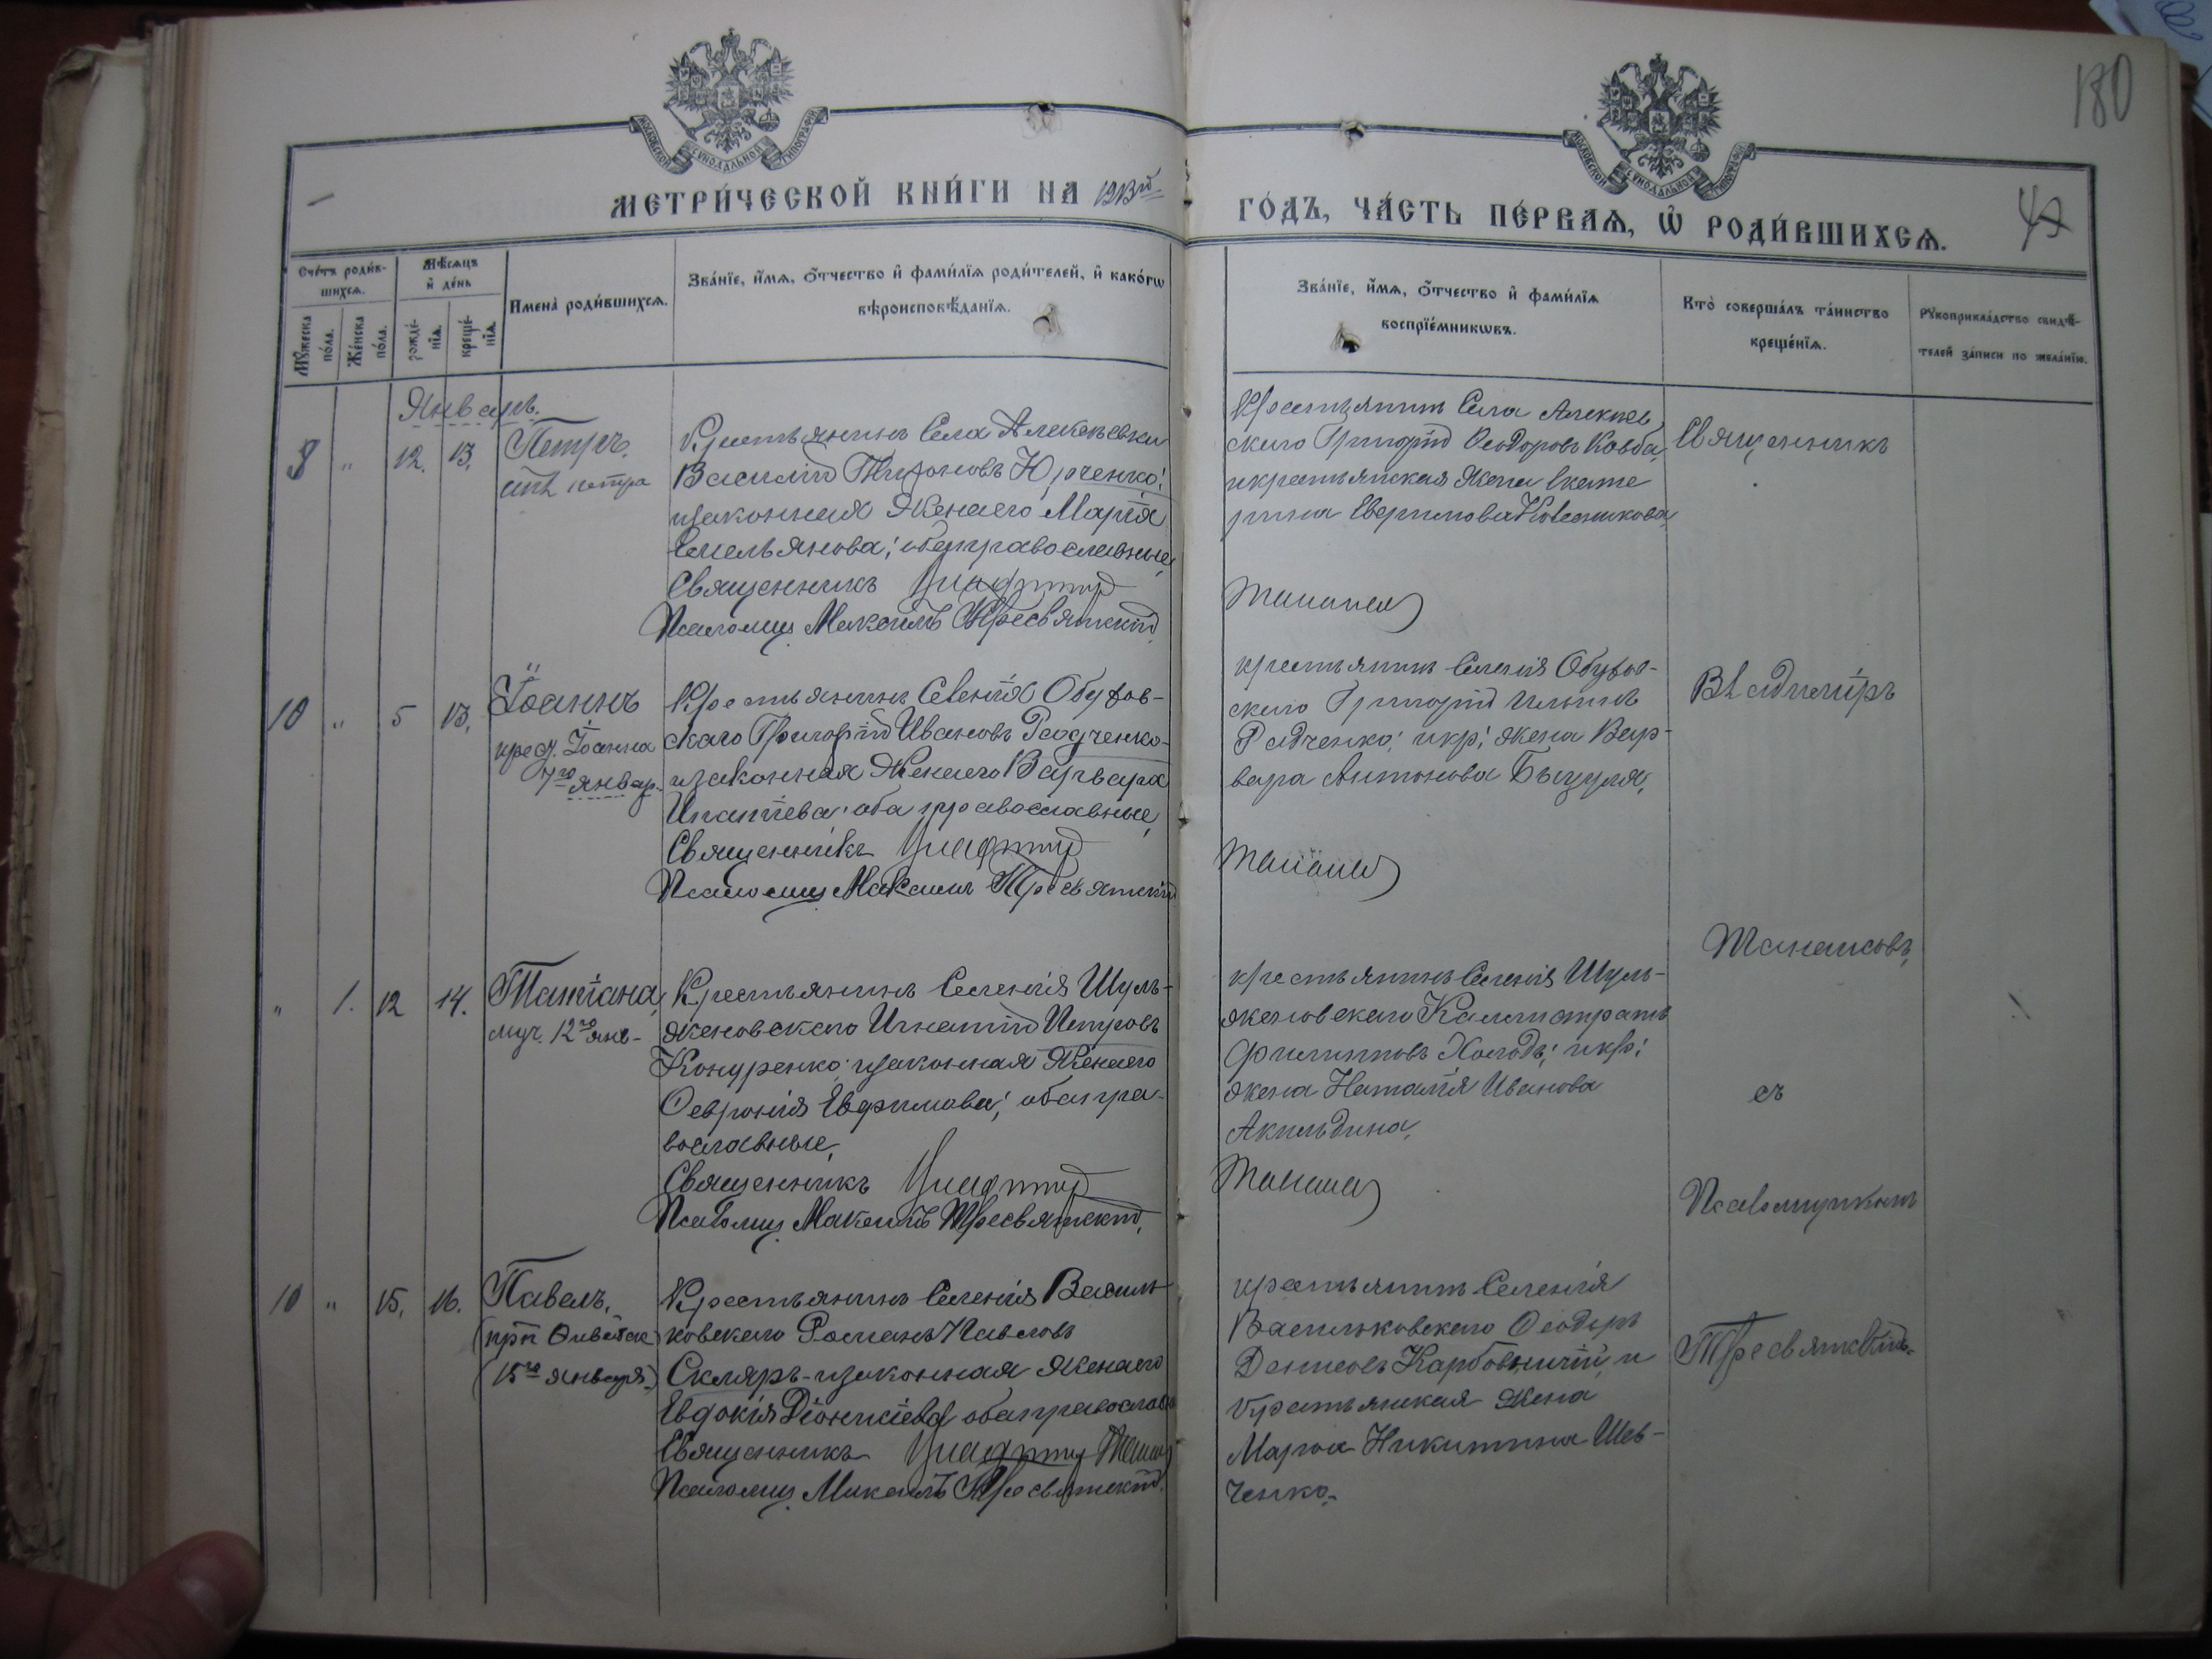 180
МОСКОВСКОЙ СѴНОДАЛЬНОЙ ТИПОГРАФІИ
МОСКОВСКОЙ СѴНОДАЛЬНОЙ ТИПОГРАФІИ
МЕТРИ́ЧЕСКОЙ КНИ́ГИ НА 1913й
ГО́ДЪ, ЧА́СТЬ ПЕ́РВАѦ, Ѽ РОДИ́ВШИХСѦ.
Сче́тъ роди́в-
шихсѧ.
Мѣ́сѧцъ
и҆ де́нь
Мꙋ́жеска
по́ла.
Же́нска
по́ла.
рожде́-
нїѧ.
креще́-
нїѧ.
И҆мена̀ роди́вшихсѧ.
Зва́нїе, и҆́мѧ, ѻ҆́тчество и҆ фами́лїѧ роди́телей, и҆ како́гѡ
вѣроисповѣ́данїѧ.
Зва́нїе, и҆́мѧ, ѻ҆́тчество и҆ фами́лїѧ
воспрїе́мникѡвъ.
Кто̀ соверша́лъ та́инство
креще́нїѧ.
Рꙋкоприкла́дство свидѣ́-
телей за́писи по жела́нїю.
Январь.
8 " 12. 13. Петръ.
Крестьянинъ Села Алексѣевки
Василій Тихоновъ Юрченко;
изаконная Жена его Марія
Емельянова; оба православные,
Священникъ
Псаломщ. Максимъ Тресвятскій
Крестьянинъ Села Алексѣев
скаго Григорій Ѳеодоровъ Ковба,
икрестьянская Жена Екате
рина Евфимова
Танаисов
Священникъ
10 " 5 13. Іоаннъ
пред. Іоанна
7го Январ.
Крестьянинъ Селенія Обухов-
скаго Григорій Ивановъ Радченко-
изаконная Жена его Варвара
Ипатіева оба православные,
Священникъ
Псаломщ Максимъ Тресвятскій
крестьянинъ Селенія Обухов-
скаго Григорій Ильинъ
Радченко; икр; жена Вар-
вара Антонова
Танаисов
Владиміръ
Танаисовъ,
" 1. 12 14. Татіана,
муч. 12го янв-
Крестьянинъ Селенія Шуль-
жековскаго Игнатій Петровъ
Конуренко; изаконная Жена его
Ѳевронія Евфимова; оба пра-
вославные,
Священникъ
Псаломщ. Максимъ Тресвятскій,
крестьянинъ Селенія Шуль-
жековскаго Каллистратъ
Филипповъ Холодъ; икр;
жена Наталія Иванова
Акильдина,
Танаисов
съ
Псаломщикомъ
10 " 15. 16. Павелъ.
(прп Ѳивейск)
(15го января)
Крестьянинъ Селенія Василь
ковскаго Романъ Павловъ
Скляръ-изаконная Жена его
Евдокія Діонисіева оба православн
Священникъ
Псаломщ. Максимъ Тресвятскій.
крестьянинъ Селенія
Васильковскаго Ѳеодоръ
Денисовъ Карбовничій, и
Крестьянская Жена
Марѳа Никитина Шев-
ченко.
Тресвятскимъ.